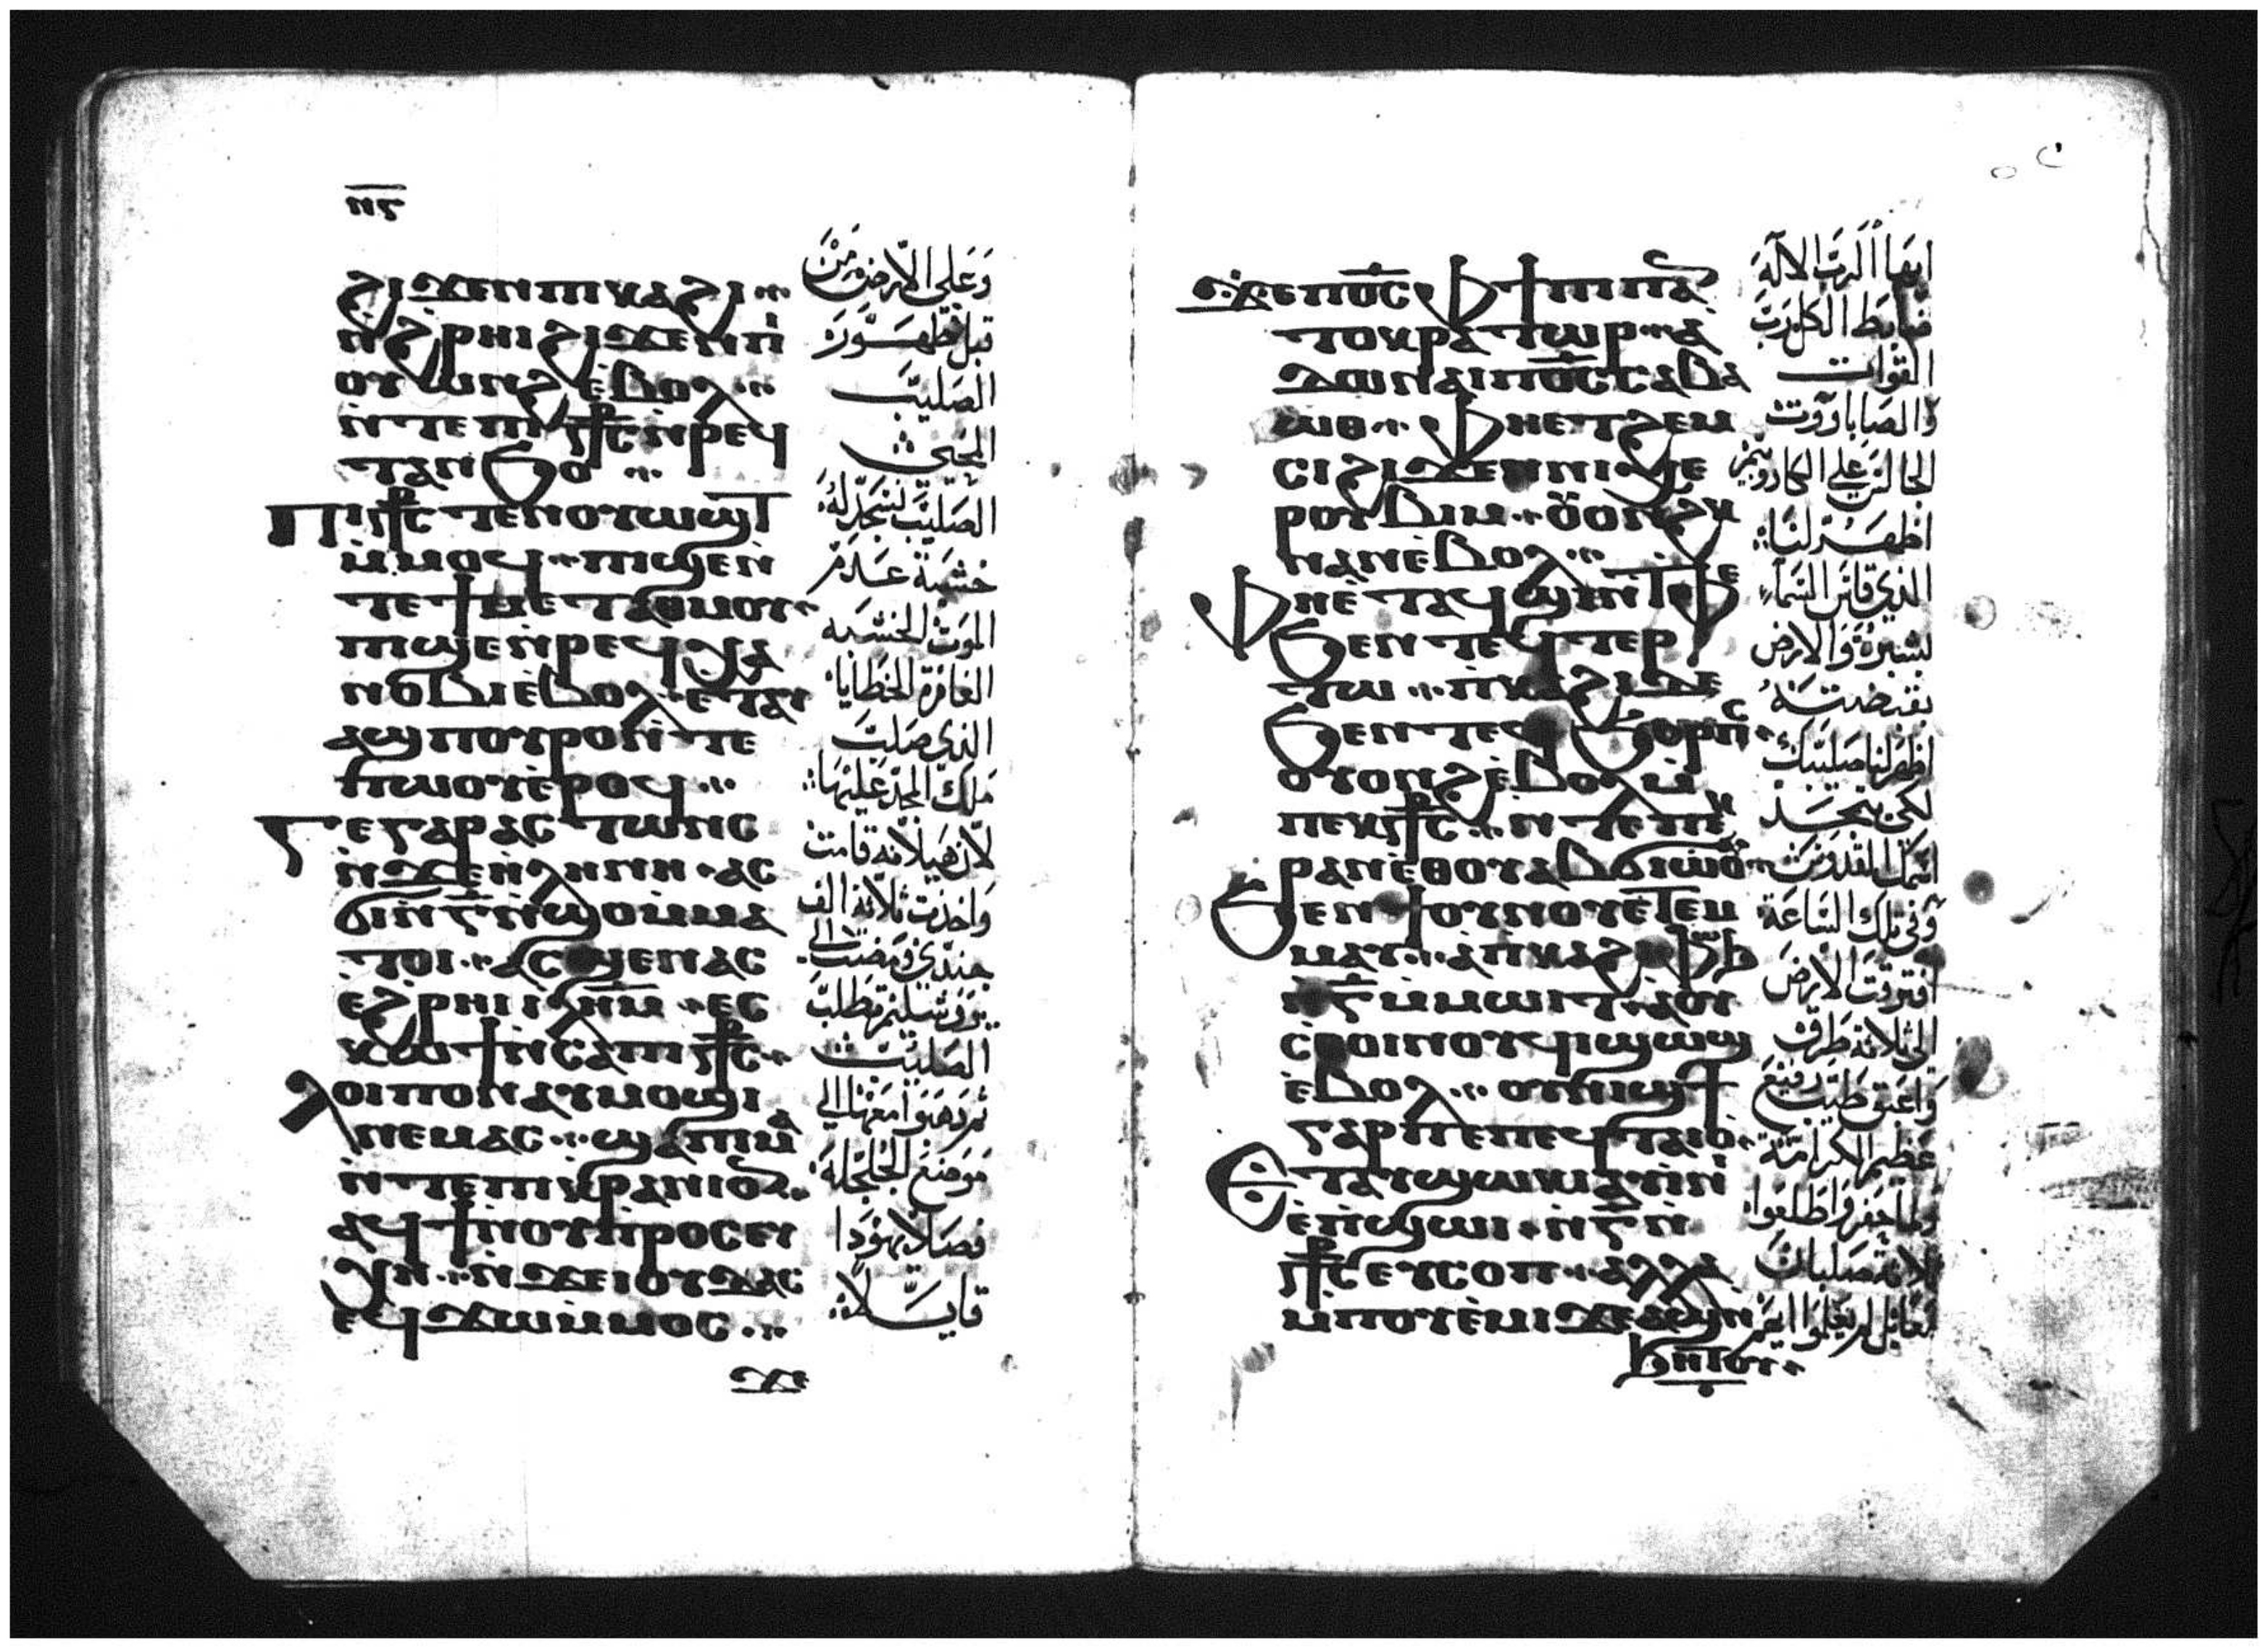 ⲛⲋ
ϩⲓϫⲉⲛ ⲡⲓⲕⲁϩⲓ
ⲛ̀ϩⲣⲏⲓ ϩⲓϫⲉⲛ ⲡⲓ
ⲟⲩⲱⲛϩ ⲉ̀ⲃⲟⲗ
ⲛ̀ⲧⲉ ⲡⲓ⳧ⲥ ⲛ̀ⲣⲉϥ
ⲧⲁⲛϧⲟ
Ⲡⲓ⳧ⲥ ⲧⲉⲛⲟⲩⲱϣⲧ
ⲙ̀ⲙⲟϥ ⲡⲓϣⲉ ⲛ̀
ⲧⲉ ϯⲙⲉⲧⲁⲑⲙⲟⲩ
ⲡⲓϣⲉ ⲛ̀ⲣⲉϥⲭⲁ
ⲛⲟⲃⲓ ⲉ̀ⲃⲟⲗ ⲉⲧⲁⲩ
ⲁϣ ⲡⲟⲩⲣⲟ ⲛ̀ⲧⲉ
ⲡ̀ⲱⲟⲩ ⲉ̀ⲣⲟϥ
Ⲅⲉ ⲅⲁⲣ ⲁⲥⲧⲱⲛⲥ
ⲛ̀ϫⲉ ϩ̀ⲗⲏⲛⲏ ⲁⲥ
ϭⲓ ⲛ̀ⲅ̅ ⲛ̀ϣⲟ ⲙ̀ⲙⲁ
ⲧⲟⲓ ⲁⲥϣⲉⲛⲁⲥ
ⲉϩ̀ⲣⲏⲓ ⲓⲗⲏⲙ ⲉⲥ
ⲕⲱϯ ⲛ̀ⲥⲁ ⲡⲓ⳧ⲥ
Ⲗⲟⲓⲡⲟⲛ ⲁⲩⲙⲟϣⲓ
ⲛⲉⲙⲁⲥ ϣⲁ ⲡⲓⲙⲁ
ⲛ̀ⲧⲉ ⲡⲓⲕⲣⲁⲛⲓⲟⲛ
ⲁϥϯ ⲛ̀ⲟⲩⲡ̀ⲣⲟⲥⲉⲩ
ⲭⲏ ⲛ̀ϫⲉ ⲓⲟⲩⲇⲁⲥ
ⲉϥϫⲱ ⲙ̀ⲙⲟⲥ
ϫⲉ
وعلى الارض من
قبل ظهور
الصليب
المحيي
الصليب نسجد له
خشبة عدم
الموت الخشبه
الغافرة الخطايا
الذي صلب
ملك المجد عليها
لان هيلانه قامت
واخذت ثلاثة الف
جندي ومضت الى
يروشليم تطلب
الصليب
ثم ذهبوا معها الى
موضع الجلجلة
فصلا يهوذا
قايلا
Ϫⲉ ⲡⲟ̅ⲥ̅ ⲫϯ ⲡⲓⲡⲁ
ⲧⲟⲕⲣⲁⲧⲱⲣ ⲁ
ⲇⲱⲛⲁⲓ ⲡⲟ̅ⲥ̅ ⲥⲁⲃⲁ
ⲱⲑ ⲫⲏⲉⲧϩⲉⲙ
ⲥⲓ ϩⲓϫⲉⲛ ⲛⲓⲭⲉ
ⲣⲟⲩⲃⲓⲙ ⲟⲩⲟⲛϩⲕ
ⲛⲁⲛ ⲉ̀ⲃⲟⲗ
Ⲫⲏⲉ̀ⲧⲁϥϣⲓ ⲛ̀ⲧⲫⲉ
ϧⲉⲛ ⲧⲉϥⲧⲉⲣ
ⲧⲱ ⲡ̀ⲕⲁϩⲓ ⲇⲉ
ϧⲉⲛ ⲧⲉϥϭⲟⲣⲡⲥ
ⲟⲩⲟⲛϩ ⲉ̀ⲃⲟⲗ ⲙ̀
ⲡⲉⲕ⳧ⲥ ⲛ̀ⲧⲉ ⲡⲉⲕ
ⲣⲁⲛ ⲉⲑⲟⲩⲁⲃ ϭⲓⲱⲟⲩ
Ϧⲉⲛ ϯⲟⲩⲛⲟⲩ ⲉ̀ⲧⲉⲙ
ⲙⲁⲩ ⲁ̀ ⲡⲕⲁϩⲓ ⲫⲱϧ
ⲛ̀ⲅ̅ ⲙ̀ⲙⲱⲓⲧ ⲁⲟⲩ
ⲥⲑⲟⲓⲛⲟⲩϥⲓ ϣⲱϣ
ⲉ̀ⲃⲟⲗ ⲟⲩⲛⲓϣϯ
ⲅⲁⲣ ⲡⲉ ⲡⲉϥⲧⲁⲓⲟ
Ⲉⲧⲁⲩϣⲱⲕⲓ ⲁⲩⲓⲛⲓ
ⲉ̀ⲡ̀ϣⲱⲓ ⲛ̀ⲅ̅ ⲛ̀
⳧ⲥ ⲉⲩⲥⲟⲡ ⲁⲗⲗⲁ
ⲙ̀ⲡⲟⲩⲉ̀ⲙⲓ ϫⲉ ⲁϣ ⲛ̀
ϧⲏⲧⲟⲩ
ايها الرب الاله
ضابط الكل رب
القوات
والصاباووت
الجالس على الكاروبيم
اظهر لنا
الذي قاس السماء
بشبره والارض
بقبضته
اظهر لنا صليبك
لكي يتمجد
اسمك القدوس
وفي تلك الساعة
افترقت الارض
الى ثلاثة طرق
واعبق طيب رفيع
عظيم الكرامة
ولما حفروا طلعوا
ثلاثة صلبان
لم يعلموا ايهم